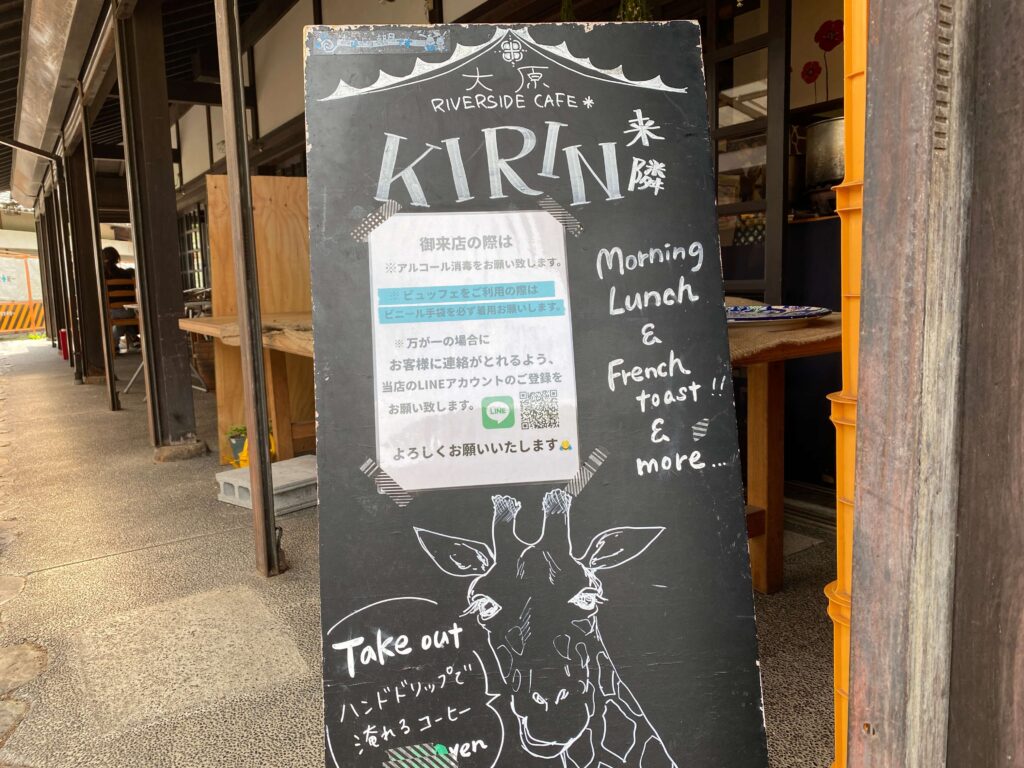 大原
RIVERSIDE CAFE*
KIRIN
来隣
御来店の際は
※アルコール消毒をお願い致します。
※ビュッフェをご利用の際は
ビニール手袋を必ず着用お願いします。
※万が一の場合に
お客様に連絡がとれるよう、
当店のLINEアカウントのご登録を
お願い致します。
LINE
よろしくお願いいたします🙇
Morning
Lunch
&
French
toast!!
&
more...
Take out
ハンドドリップで
淹れるコーヒー
yen